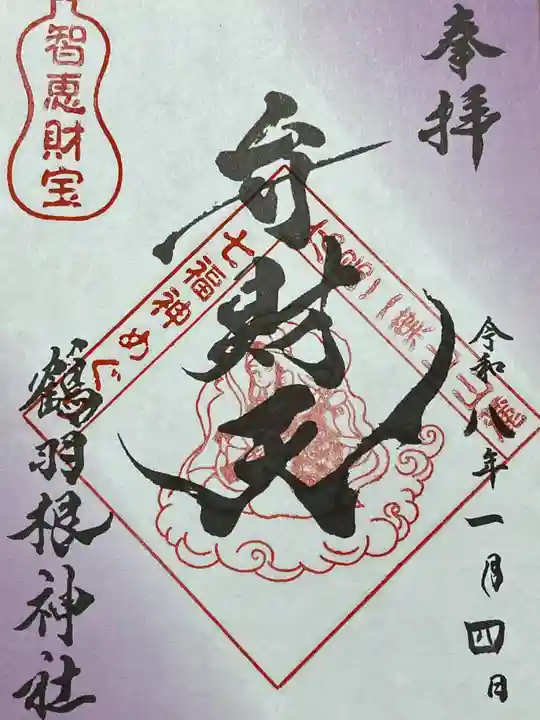 奉拝
令和八年一月四日
弁財天
智恵財宝
七福神めぐ
鶴羽根神社